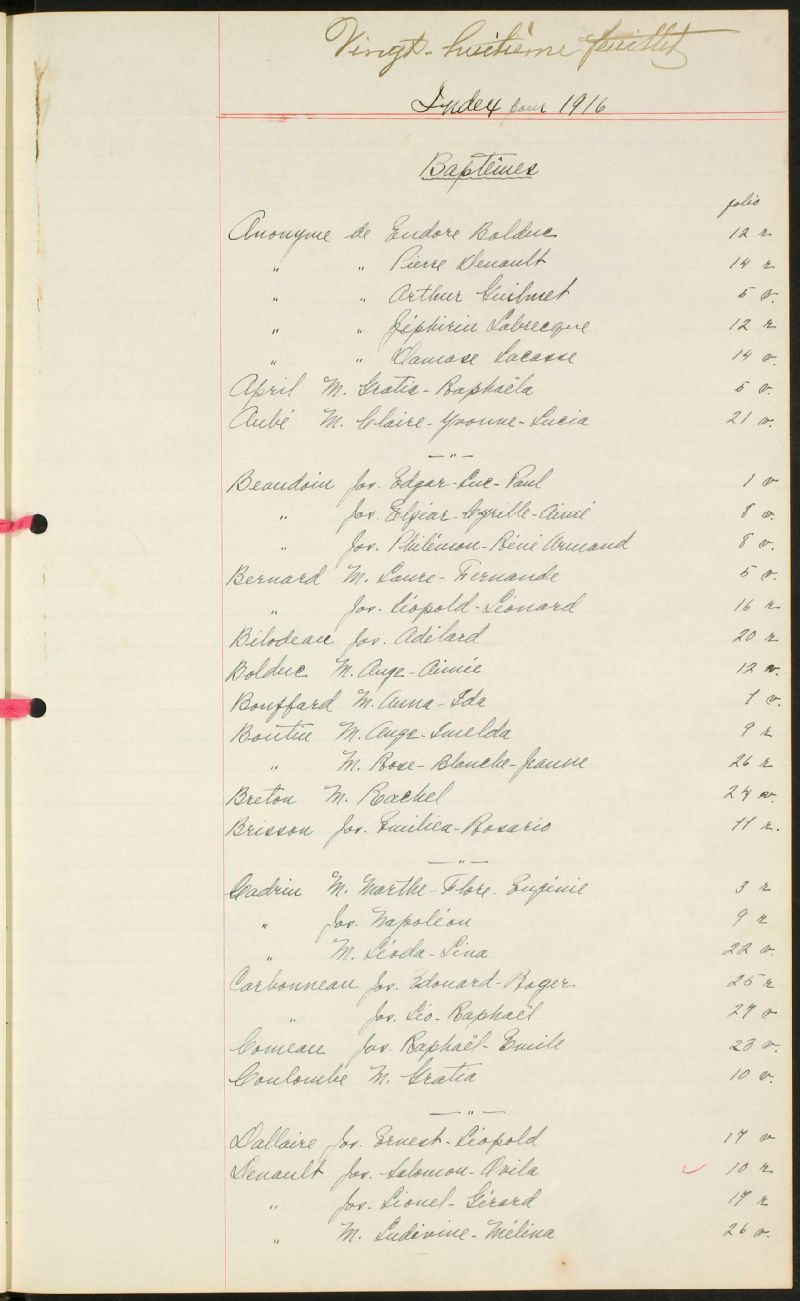 Vingt-huitième feuillet
Index pour 1916
Baptêmes
folio
Anonyme de Eudore Bolduc 12 r
" " Pierre Denault 14 r
" " Arthur Guilmet 5 v.
" " Zéphirin Labrecque 12 r
" " Damase Lacasse 14 v.
April M. Gratia-Raphaëla 5 v.
Aubé M. Claire-Yvonne-Lucia 21 v.
—"—
Beaudoin Jos. Edgar-Luc-Paul 1 v
" Jos. Elzéar-Cyrille-Aimé 8 v.
" Jos. Philémon-Réné Armand 8 v.
Bernard M. Laure-Fernande 5 v.
" Jos. Léopold-Léonard 16 r
Bilodeau Jos. Adélard 20 r
Bolduc M. Ange-Aimée 12 v.
Bouffard M. Anna-Ida 1 v.
Boutin M. Ange-Imelda 9 r
" M. Rose-Blanche-Jeanne 26 r
Breton M. Rachel 24 v.
Brisson Jos. Emilien-Rosario 11 r.
—"—
Cadrin M. Marthe-Flore-Eugénie 3 r
" Jos. Napoléon 9 r
" M. Léoda-Lina 22 v.
Carbonneau Jos. Edouard-Roger 25 r
" Jos. Léo-Raphaël 27 v
Comeau Jos. Raphaël-Emile 23 v.
Coulombe M. Gratia 10 v.
—"—
Dallaire Jos. Ernest-Léopold 17 v
Denault Jos. Salomon-Ovila ✓ 10 r
" Jos. Lionel-Gérard 17 r
" M. Ludivine-Mélina 26 v.